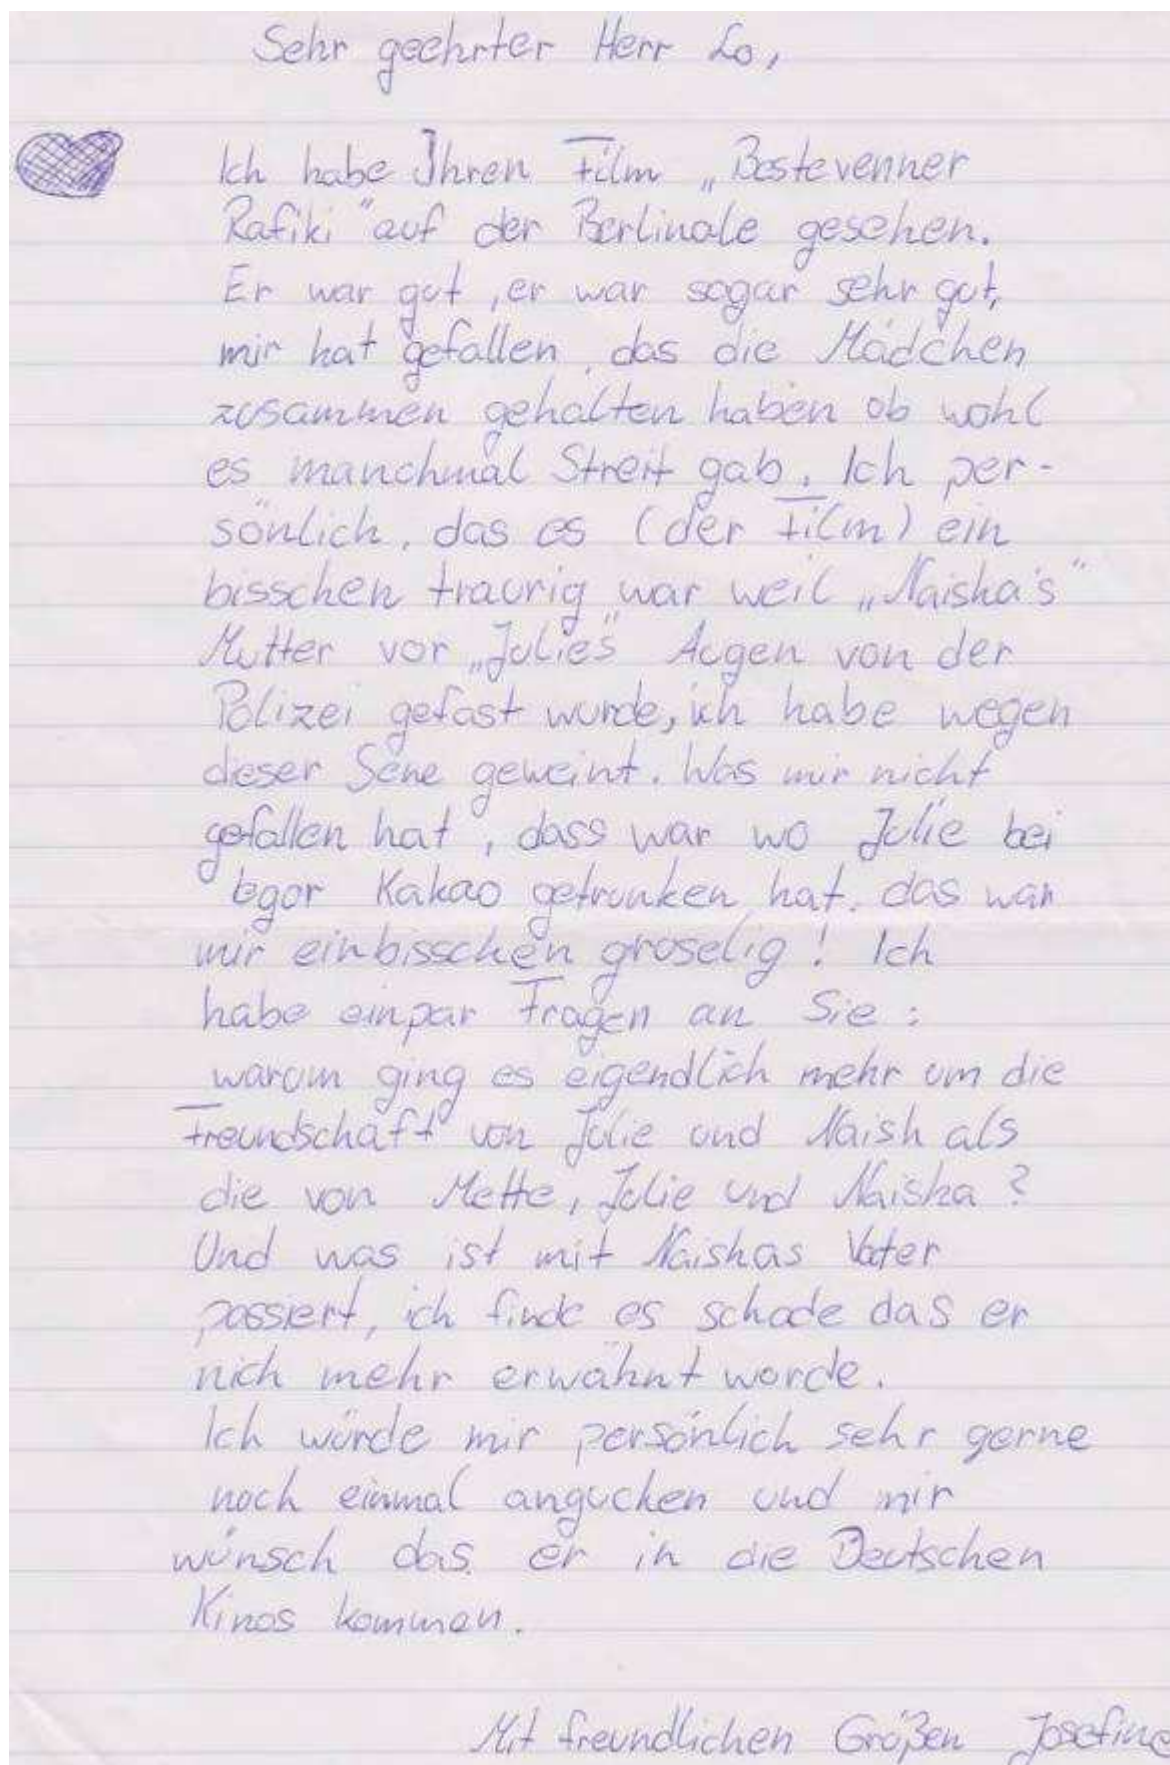 Sehr geehrter Herr Lo,
Ich habe Ihren Film „Bestevenner
Rafiki" auf der Berlinale gesehen.
Er war gut, er war sogar sehr gut,
mir hat gefallen, das die Mädchen
zusammen gehalten haben ob wohl
es manchmal Streit gab. Ich per-
sönlich, das es (der Film) ein
bisschen traurig war weil „Naisha's"
Mutter vor „Julie's" Augen von der
Polizei gefast wurde, ich habe wegen
dieser Sene geweint. Was mir nicht
gefallen hat, dass war wo Julie bei
Egor Kakao getrunken hat, das war
mir einbisschen gruselig! Ich
habe einpar Fragen an Sie:
warum ging es eigendlich mehr um die
Freundschaft von Julie und Naish als
die von Mette, Julie und Naisha?
Und was ist mit Naishas Vater
passiert, ich finde es schade das er
nich mehr erwähnt wurde.
Ich würde mir persönlich sehr gerne
noch einmal angucken und mir
wünsch das er in die Deutschen
Kinos kommen.
Mit freundlichen Grüßen Josefine